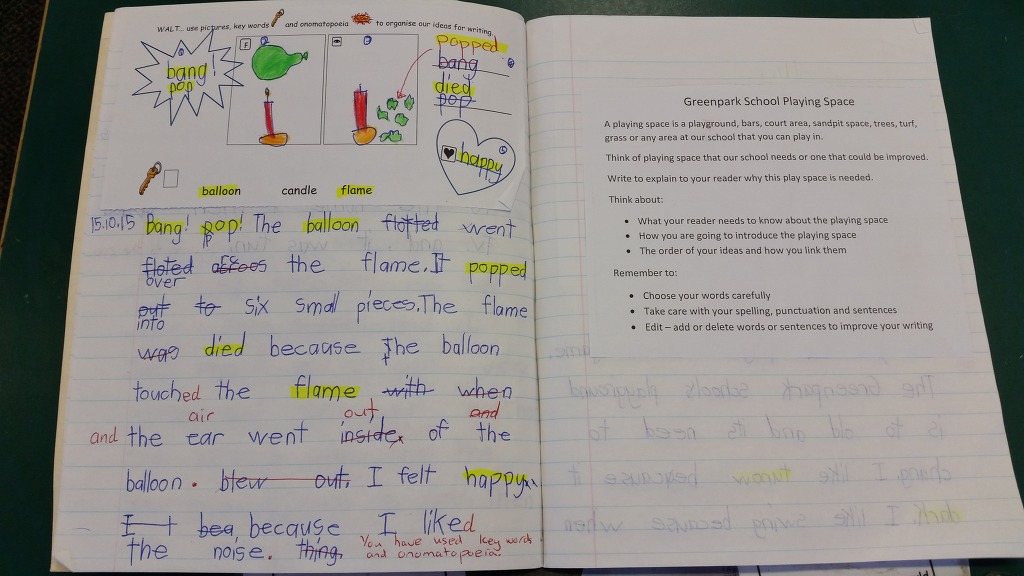 WALT... use pictures, key words and onomatopoeia to organise our ideas for writing.
bang!
pop
popped
bang
died
pop
happy
balloon candle flame
15.10.15 Bang! pop! The balloon flotted went
floted over across the flame. It popped
out into to six small pieces. The flame
was died because the balloon
touched the flame with when
and the ear air went inside out of and the
balloon. blew out. I felt happy
I bea because I liked
the noise. thing.
You have used key words
and onomatopoeia.
Greenpark School Playing Space
A playing space is a playground, bars, court area, sandpit space, trees, turf,
grass or any area at our school that you can play in.
Think of playing space that our school needs or one that could be improved.
Write to explain to your reader why this play space is needed.
Think about:
• What your reader needs to know about the playing space
• How you are going to introduce the playing space
• The order of your ideas and how you link them
Remember to:
• Choose your words carefully
• Take care with your spelling, punctuation and sentences
• Edit – add or delete words or sentences to improve your writing
The Greenpark school's playground
is to old and its need to
chang. I like because it
I like swing because when